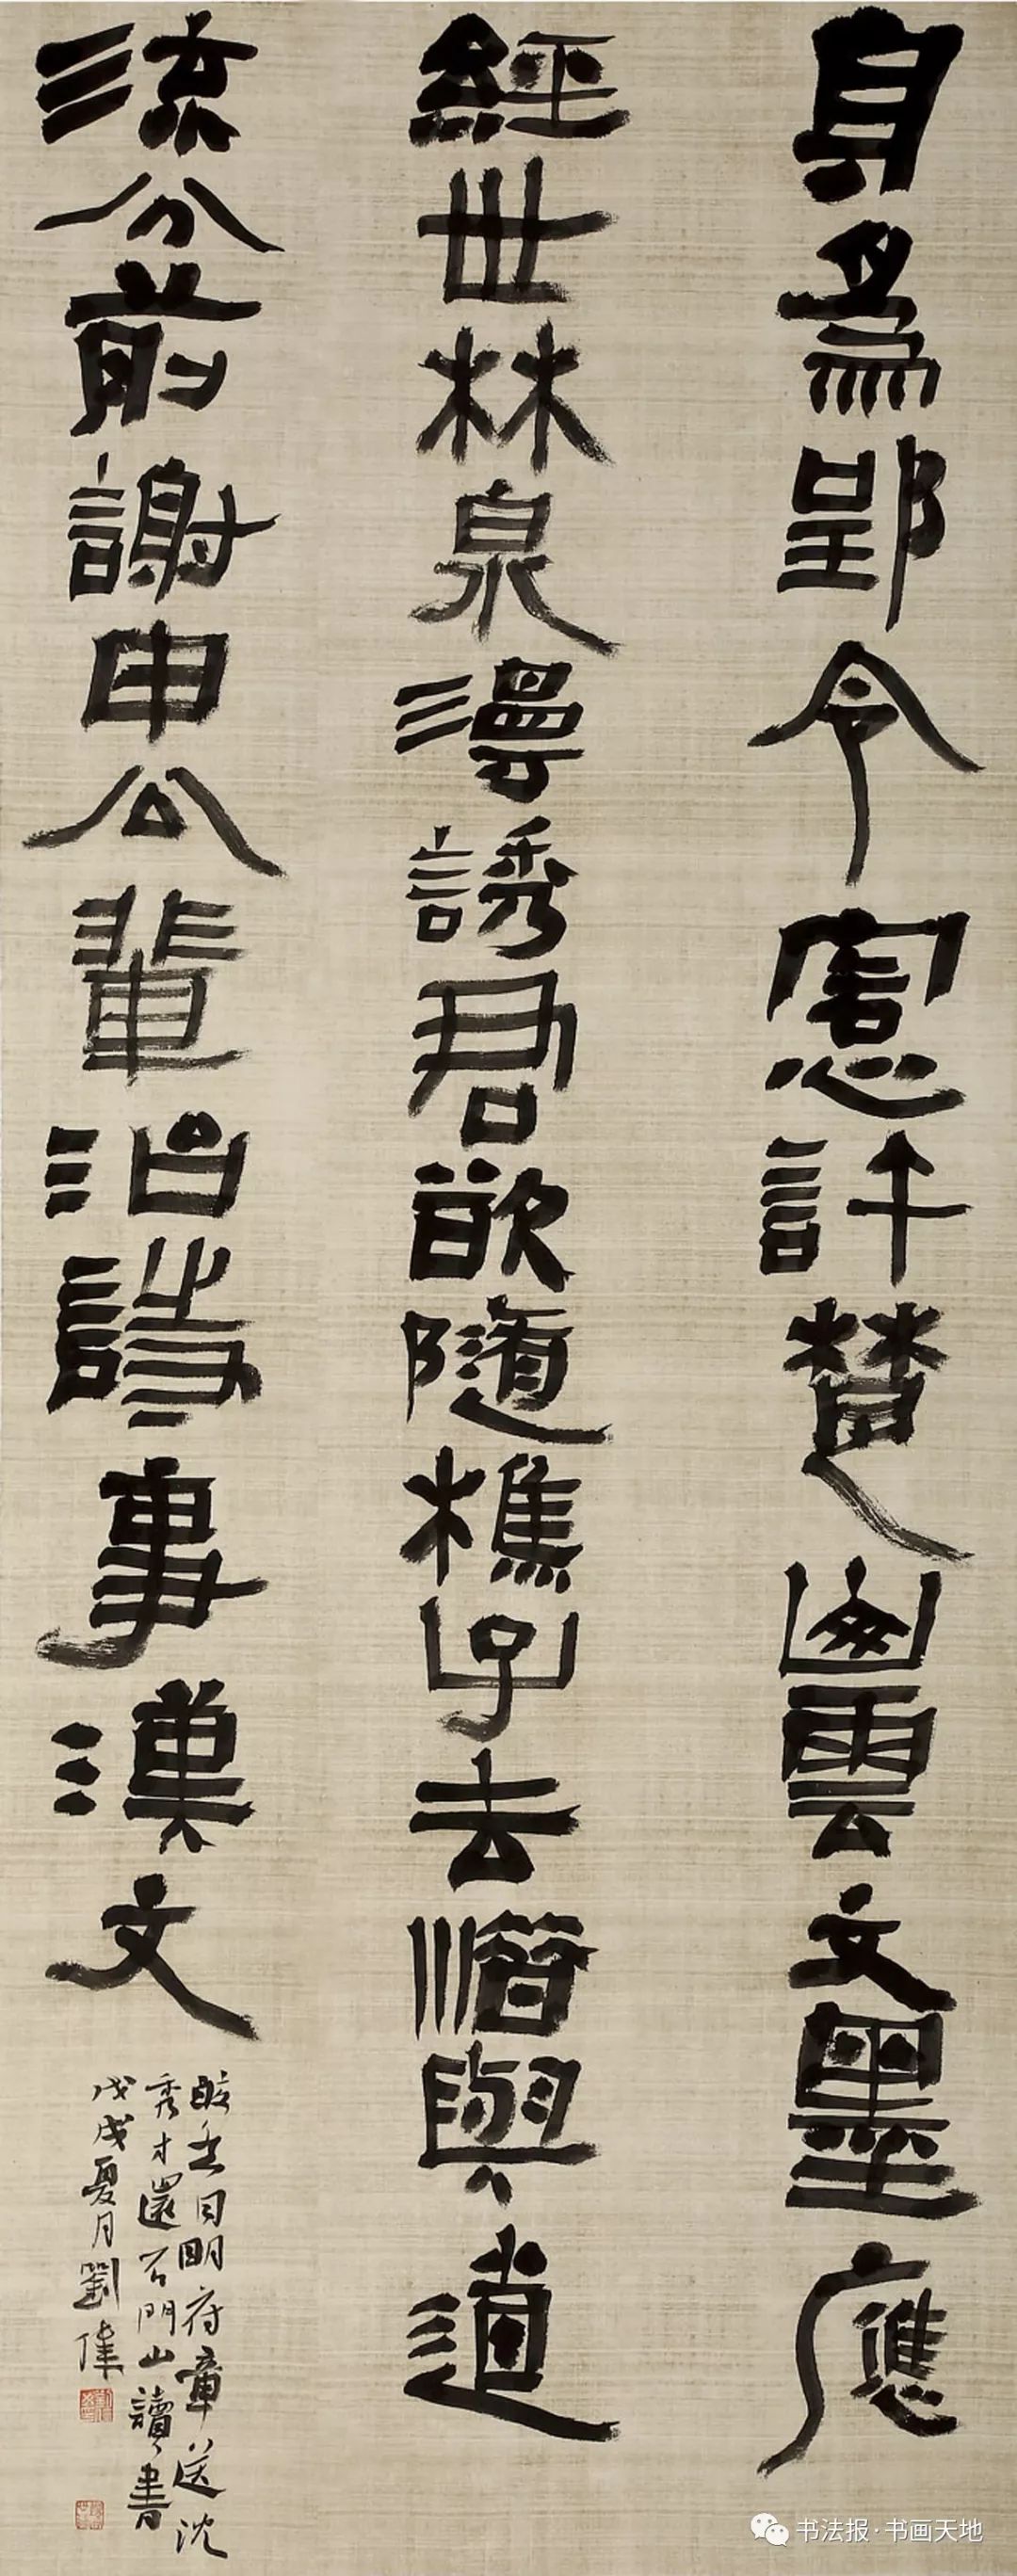 身為郢令客心許楚山雲文墨應
經世林泉漫誘君欲隨樵子去惜與道
流分前謝申公輩治詩事漢文
皎然同明府章送沈
秀才還石門山讀書
戊戌夏月劉偉
书法报·书画天地